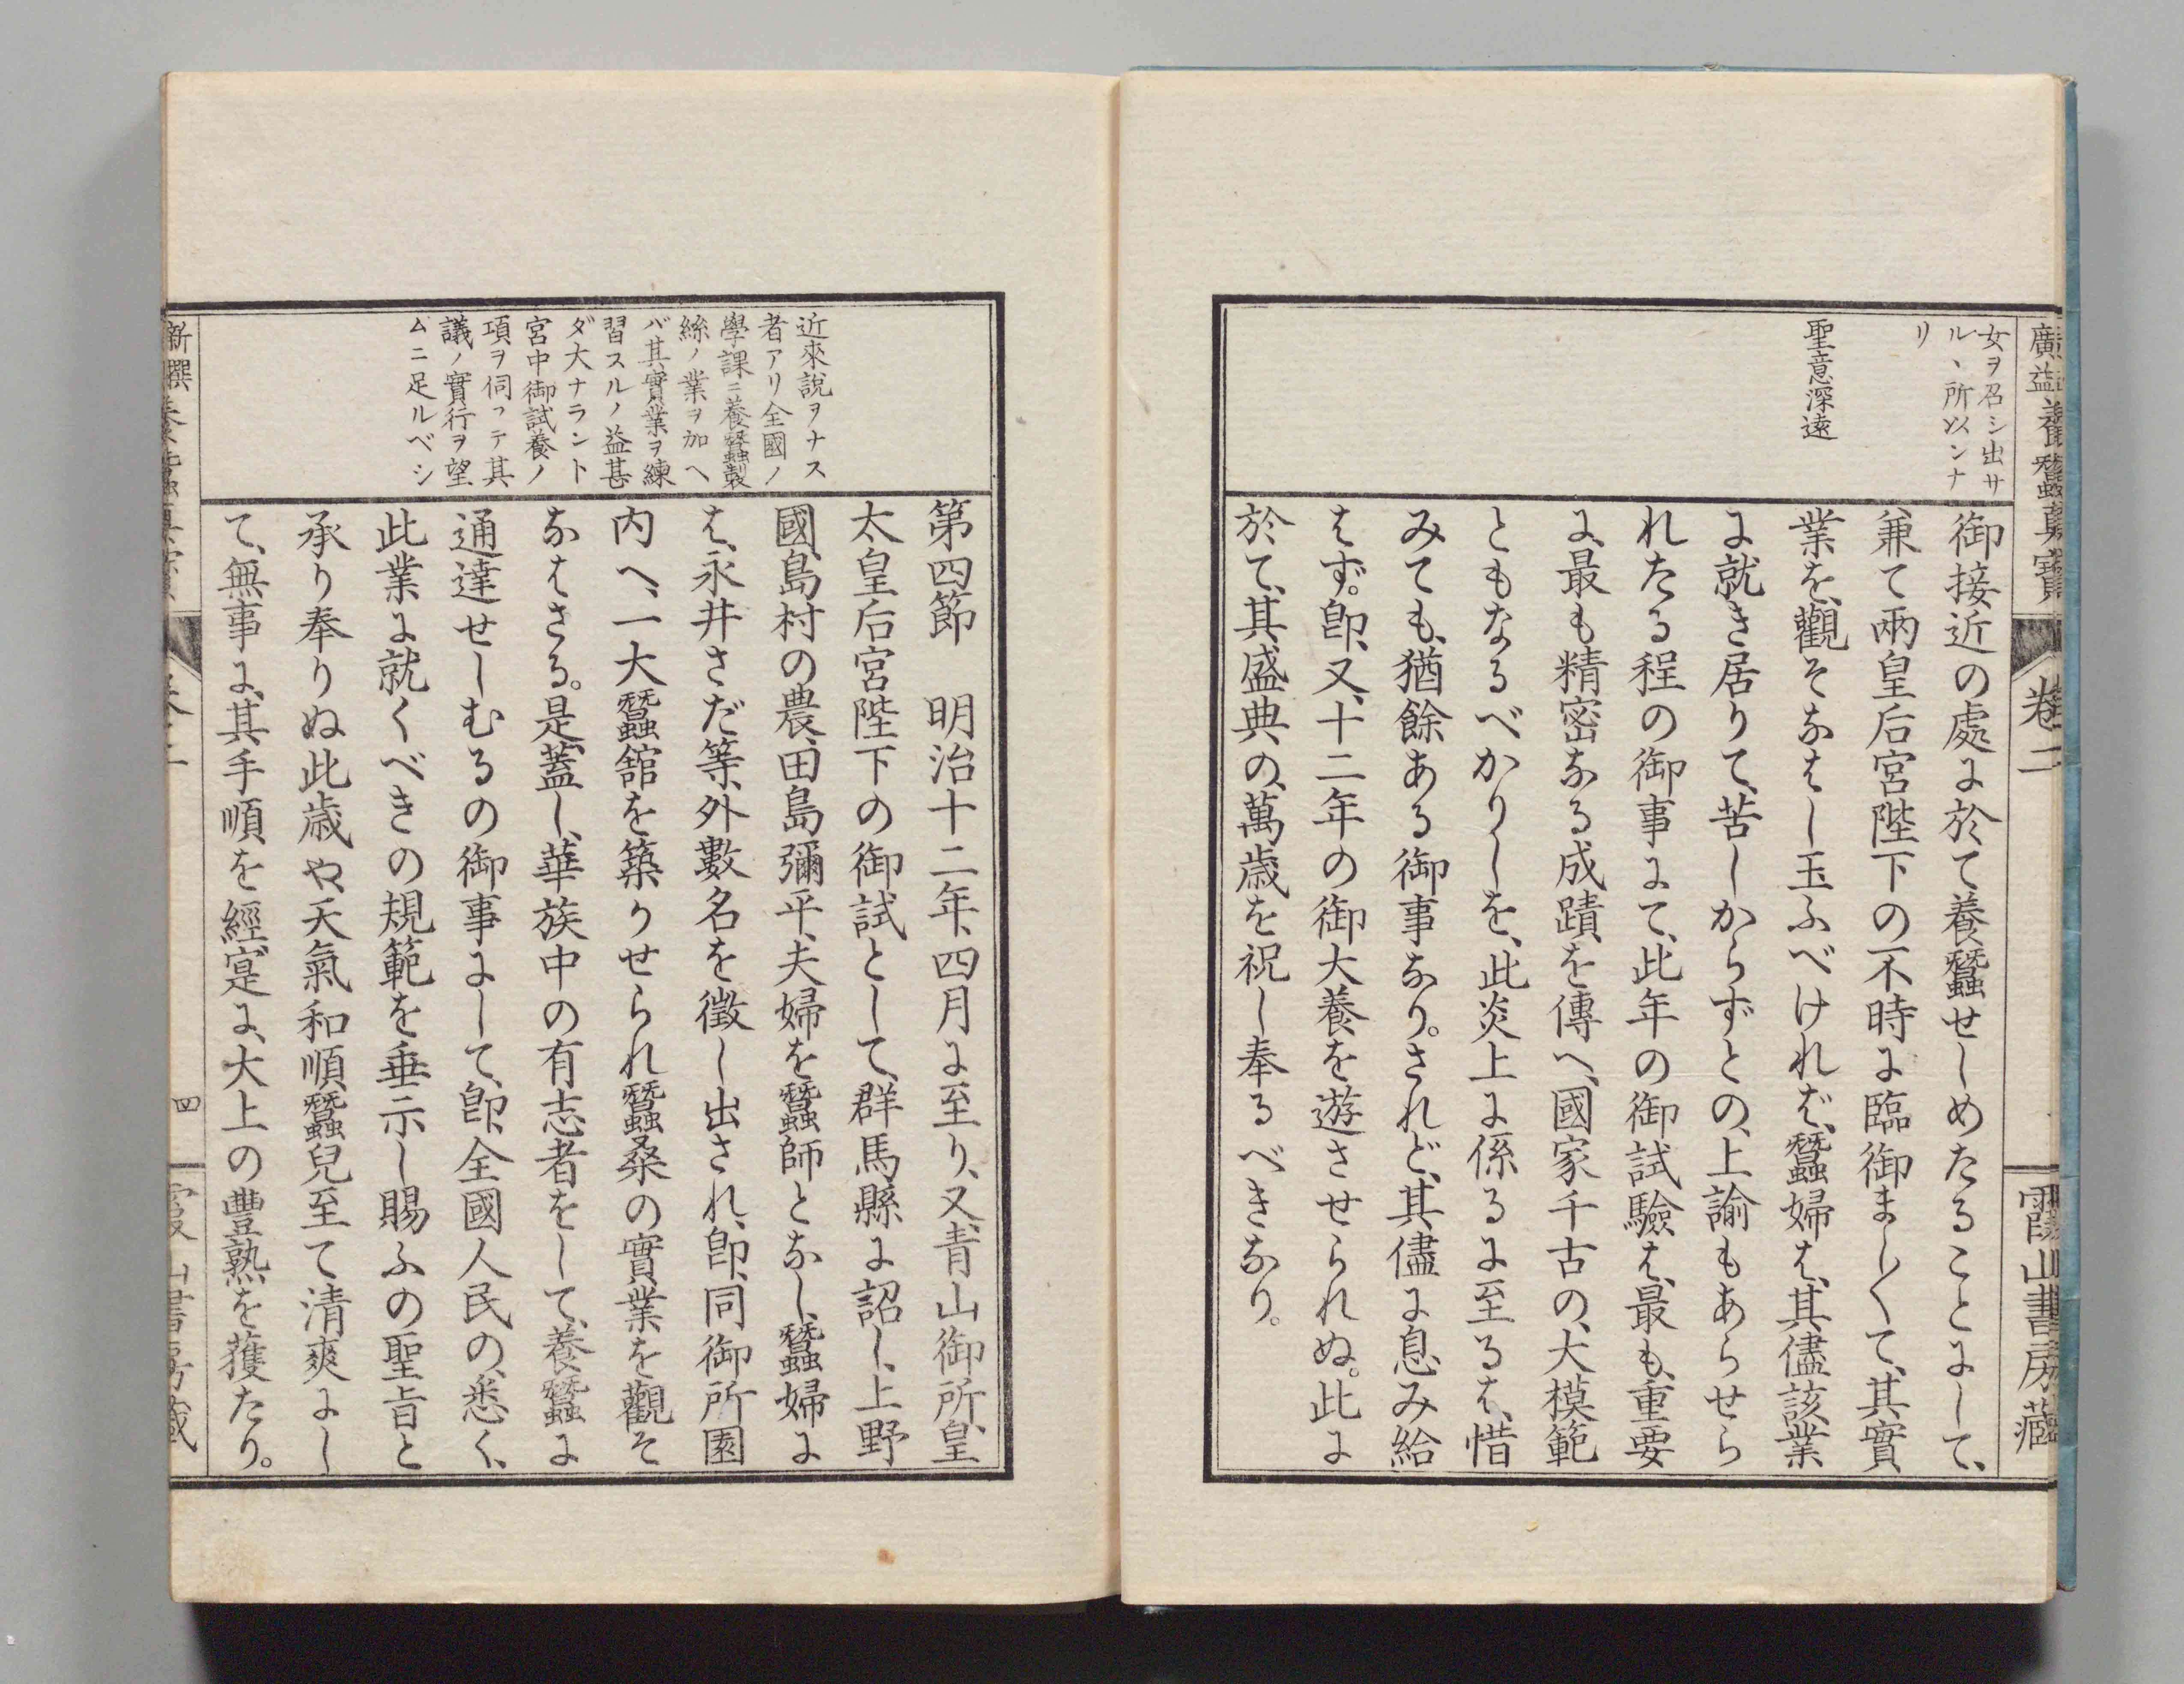 廣益養蠶眞寶
卷二
霞山書房藏
女ヲ召シ出サ
ルヽ所以ンナ
リ
聖意深遠
御接近の處よ於て養蠶せしめたることよして、
兼て兩皇后宮陛下の不時よ臨御まし〱て、其實
業を、觀そなはし玉ふべければ、蠶婦は、其儘該業
よ就き居りて、苦しからずとの、上諭もあらせら
れたる程の御事よて、此年の御試驗は、最も、重要
よ、最も精密なる成蹟を傳へ、國家千古の、大模範
ともなるべかりしを、此炎上よ係るよ至るは、惜
みても、猶餘ある御事なり。されど、其儘よ息み給
はず。卽、又、十二年の御大養を遊させられぬ。此よ
於て、其盛典の、萬歳を祝し奉るべきなり。
近來說ヲナス
者アリ全國ノ
學課ニ養蠶製
絲ノ業ヲ加ヘ
バ其實業ヲ練
習スルノ益甚
ダ大ナラント
宮中御試養ノ
項ヲ伺フテ其
議ノ實行ヲ望
ムニ足ルベシ
第四節　明治十二年、四月よ至り、又、青山御所、皇
太皇后宮陛下の御試として、群馬縣よ詔し、上野
國、島村の農、田島彌平、夫婦を蠶師となし、蠶婦よ
は、永井さだ等、外數名を徵し出され、卽、同御所園
内へ、一大蠶舘を築りせられ蠶桑の實業を觀そ
なはさる。是、蓋し、華族中の有志者をして、養蠶よ
通達せしむるの御事よして、卽、全國人民の、悉く、
此業よ就くべきの規範を垂示し賜ふの聖旨と
承り奉りぬ此歳や天氣和順蠶兒至て清爽よし
て、無事よ、其手順を經、寔よ、大上の豐熟を獲たり。
新撰
四